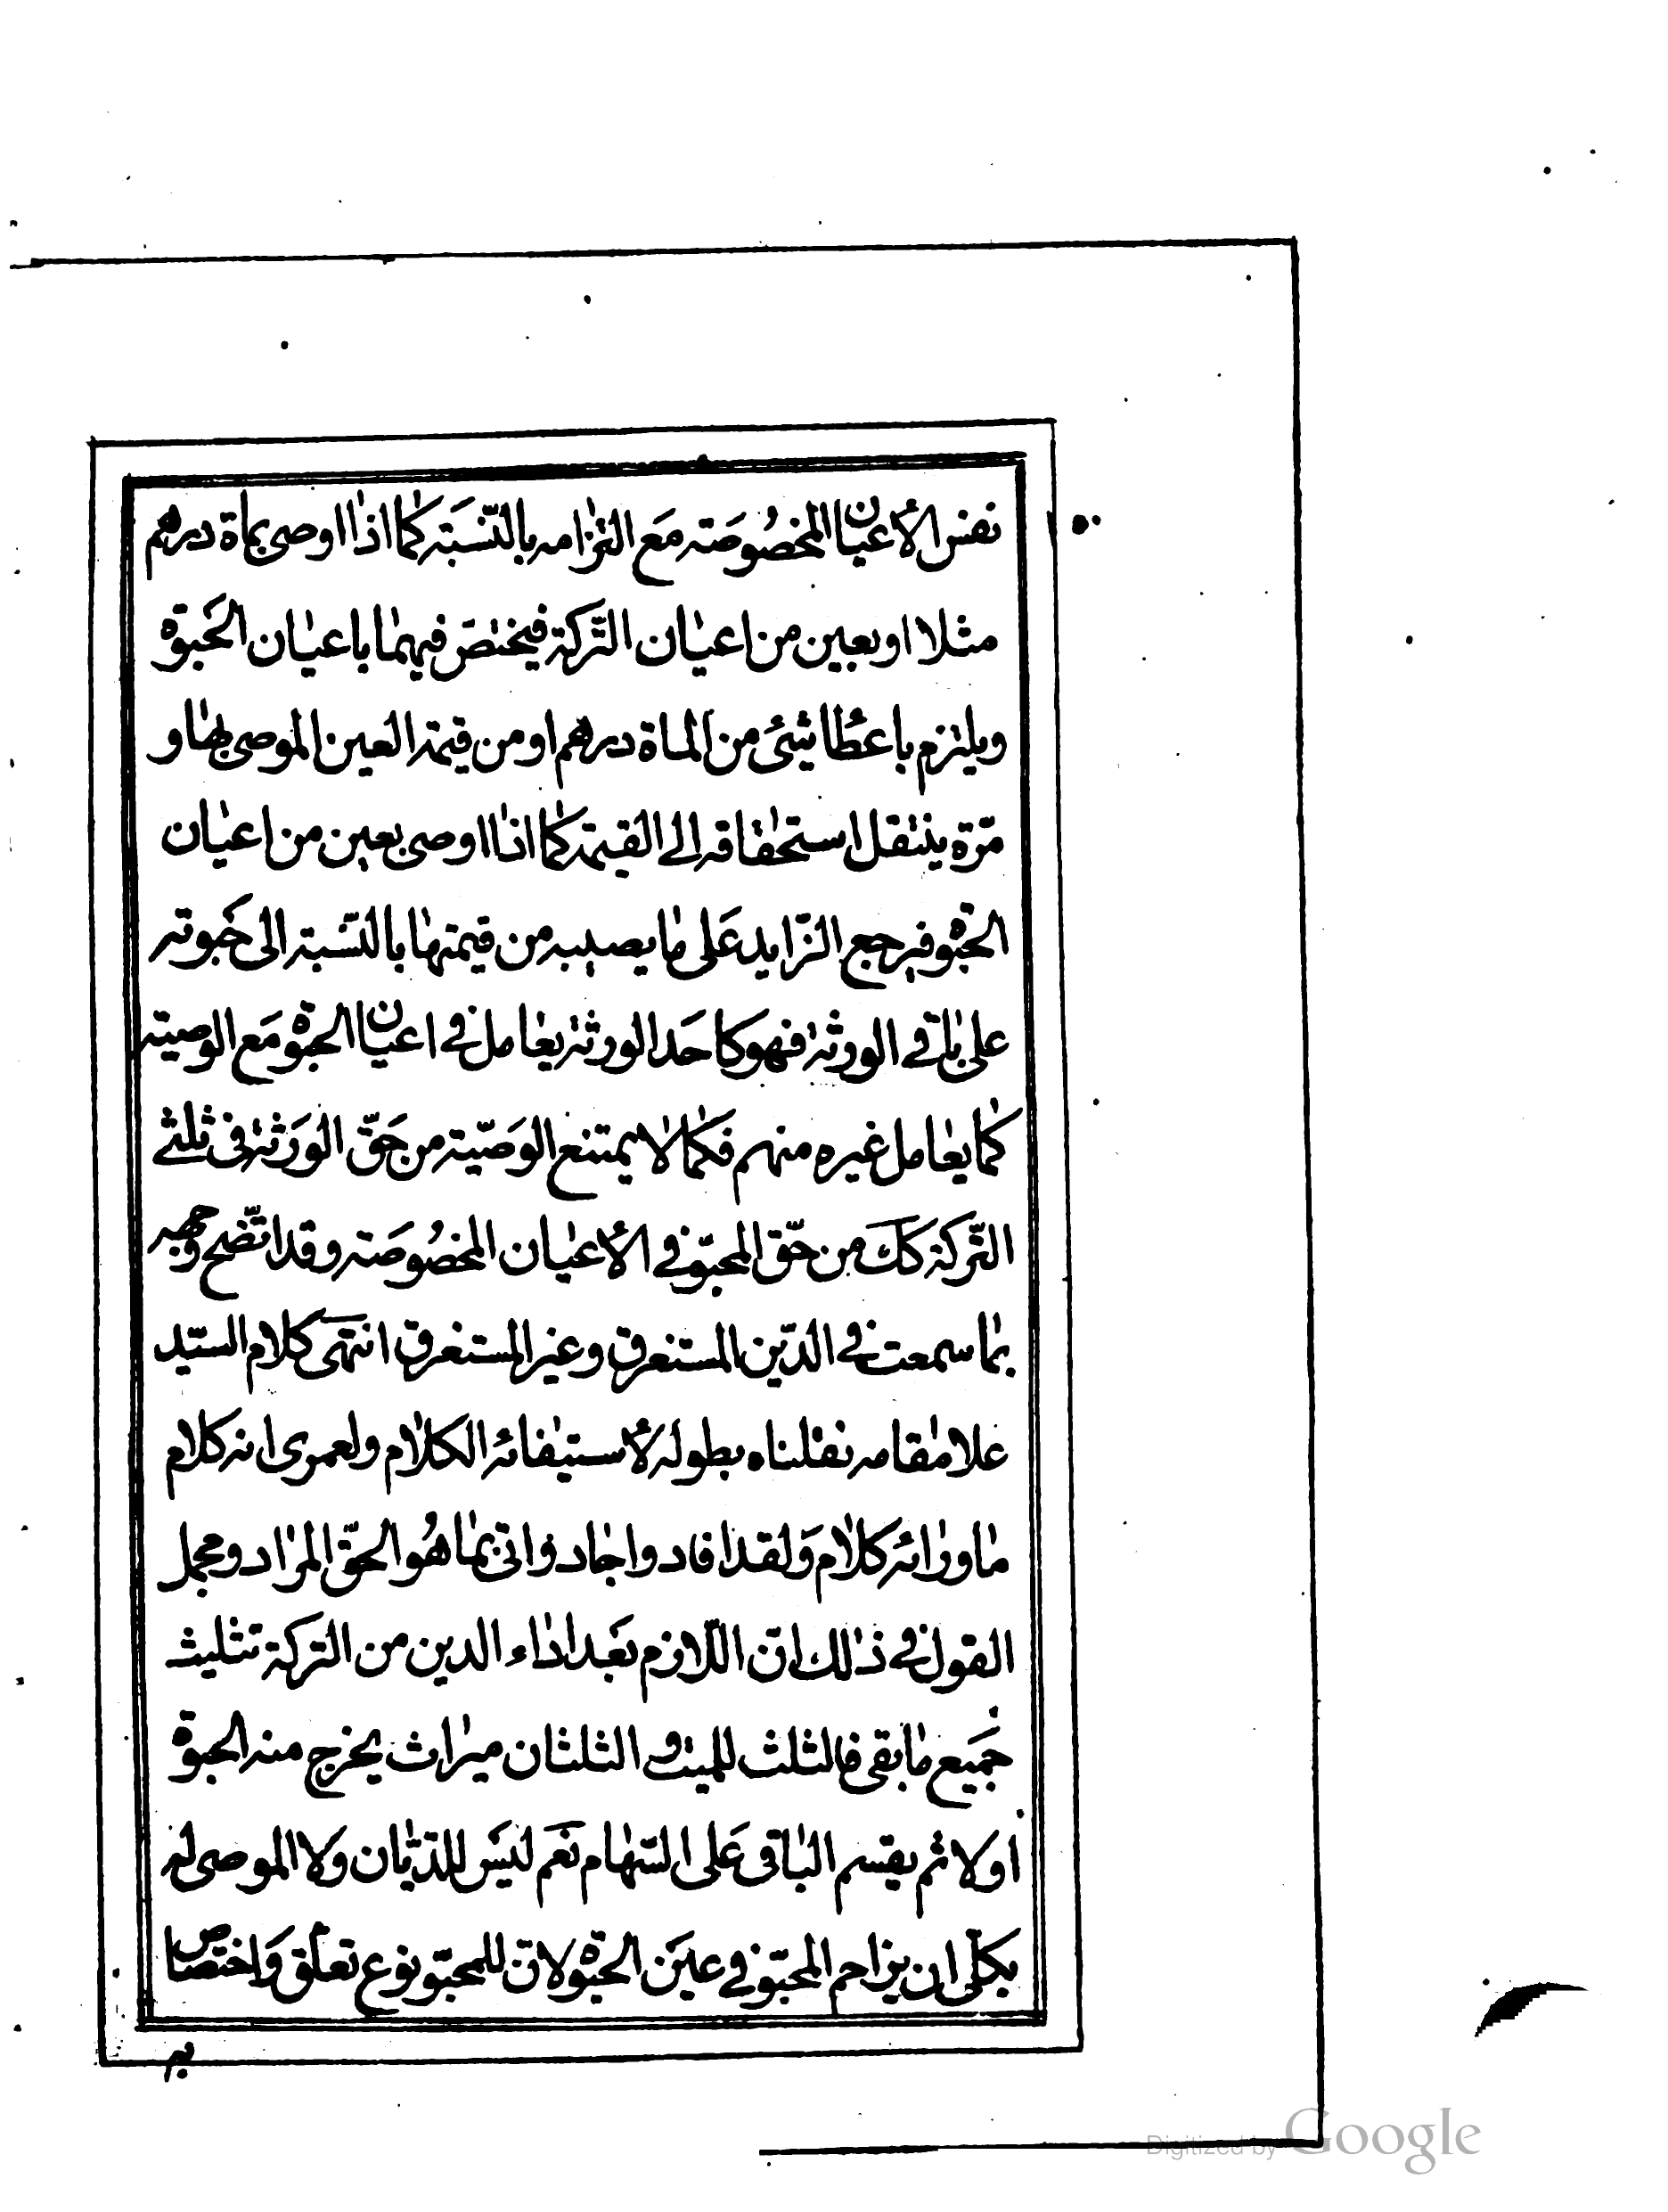 نفس الأعيان المخصوصة مع التزامه بالنسبة كما اذا اوصى بماة درهم
مثلا او بعين من اعيان التركة فيختص فيهما باعيان الحبوة
ويلتزم باعطا شئ من الماة درهم او من قيمة العين الموصى بها و
مرّة ينتقل استحقاقه الى القيمة كما اذا اوصى بعين من اعيان
الحبوة فيرجع الزايد على ما يصيبه من قيمتها بالنسبة الى حبوته
على باقي الورثة فهو كاحد الورثة يعامل في اعيان الحبوة مع الوصية
كما يعامل غيره منهم فكما لا يمتنع الوصيّة من حقّ الورثة في ثلثي
التركة كك من حقّ المحبوّ في الأعيان المخصوصة وقد اتّضح وجهه
بما سمعت في الدّين المستغرق وغير المستغرق انتهى كلام السيّد
علا مقامه نقلناه بطوله لأستيفائه الكلام ولعمرى انه كلام
ما ورائه كلام ولقد افاد واجاد واتى بما هو الحقّ المراد ومجمل
القول في ذالك انّ اللّازم بعد اداء الدين من التركة تثليث
جميع ما بقى فالثلث للميت و الثلثان ميراث يخرج منه الحبوة
اولا ثم يقسم الباقى على السّهام نعم ليس للدّيّان ولا الموصى له
بكلّى ان يزاحم المحبوّ في عين الحبوة لانّ للمحبوّ نوع تعلّق واختصاص
بر
Digitized by Google